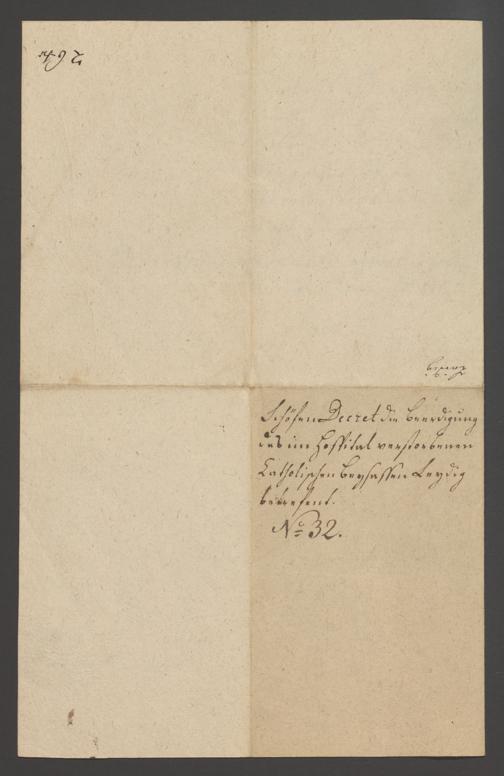 Schöfen Decret die Beerdigung
des im Hospital verstorbenen
Catholischen Beysassen Leydig
betrefent.
No 32.